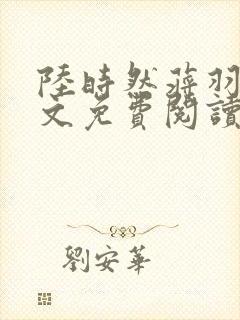 陸時然蔣羽
文免費閱讀
劉安華